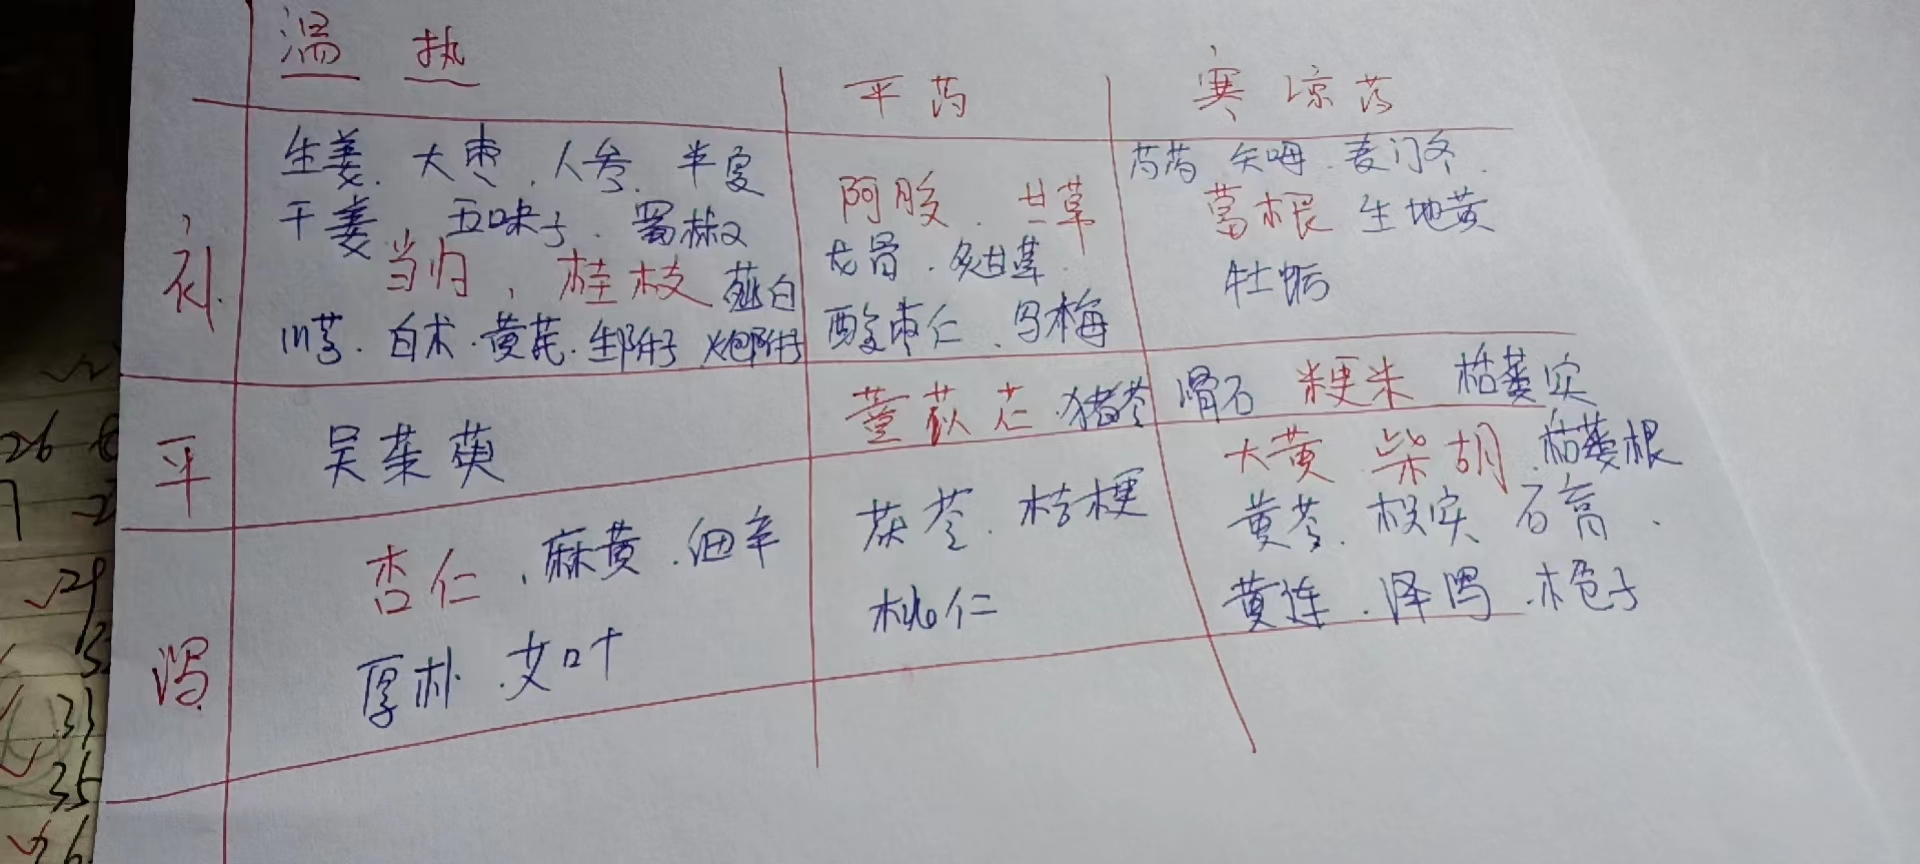 温 热
平药
寒凉药
补
生姜.大枣.人参.半夏
干姜 五味子.蜀椒
当归、桂枝 薤白
川芎.白术.黄芪.生附子 炮附子
阿胶.甘草
龙骨.炙甘草
酸枣仁.乌梅
芍药 知母.麦门冬.
葛根 生地黄
牡蛎
平
吴茱萸
薏苡仁.猪苓
滑石 粳米 栝蒌实
泻
杏仁.麻黄.细辛
厚朴.艾叶
茯苓.桔梗
桃仁
大黄 柴胡.栝蒌根
黄芩.枳实 石膏.
黄连.泽泻.栀子
26
7
29
33
35